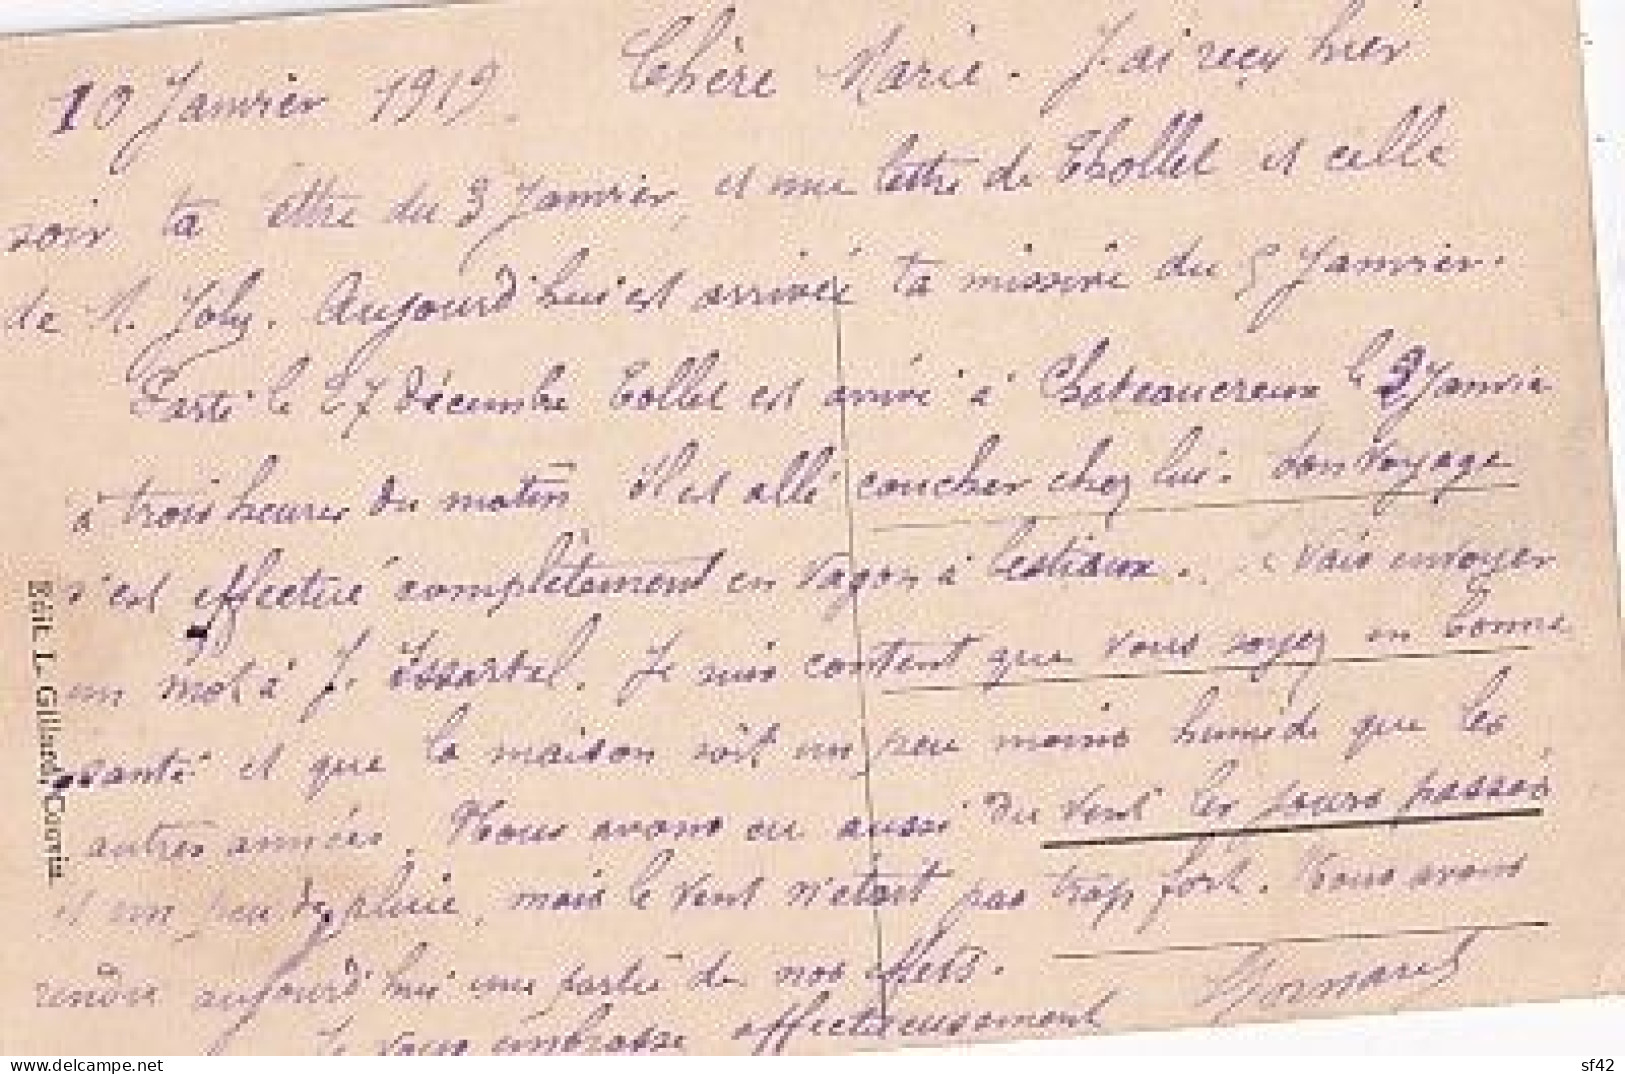 10 Janvier 1919. Chère Marie. J'ai reçu hier
soir ta lettre du 3 Janvier, et une lettre de Thollet et celle
de M. Joly. Aujourd'hui est arrivée ta missive du 5 Janvier.
Parti le 27 décembre Tollet est arrivé à Chateaucreux le 3 Janvier
à trois heures du matin. Il est allé coucher chez lui. Son voyage
s'est effectué complètement en vagon à bestiaux. Vais envoyer
un mot à J. Issartel. Je suis content que vous soyez en bonne
santé et que la maison soit un peu moins humide que les
autres années. Nous avons eu aussi du vent les jours passés
et un peu de pluie, mais le vent n'était pas trop fort. Nous avons
rendu aujourd'hui une partie de nos effets.
Je vous embrasse affectueusement
Edit. L. Gillard,
sf42